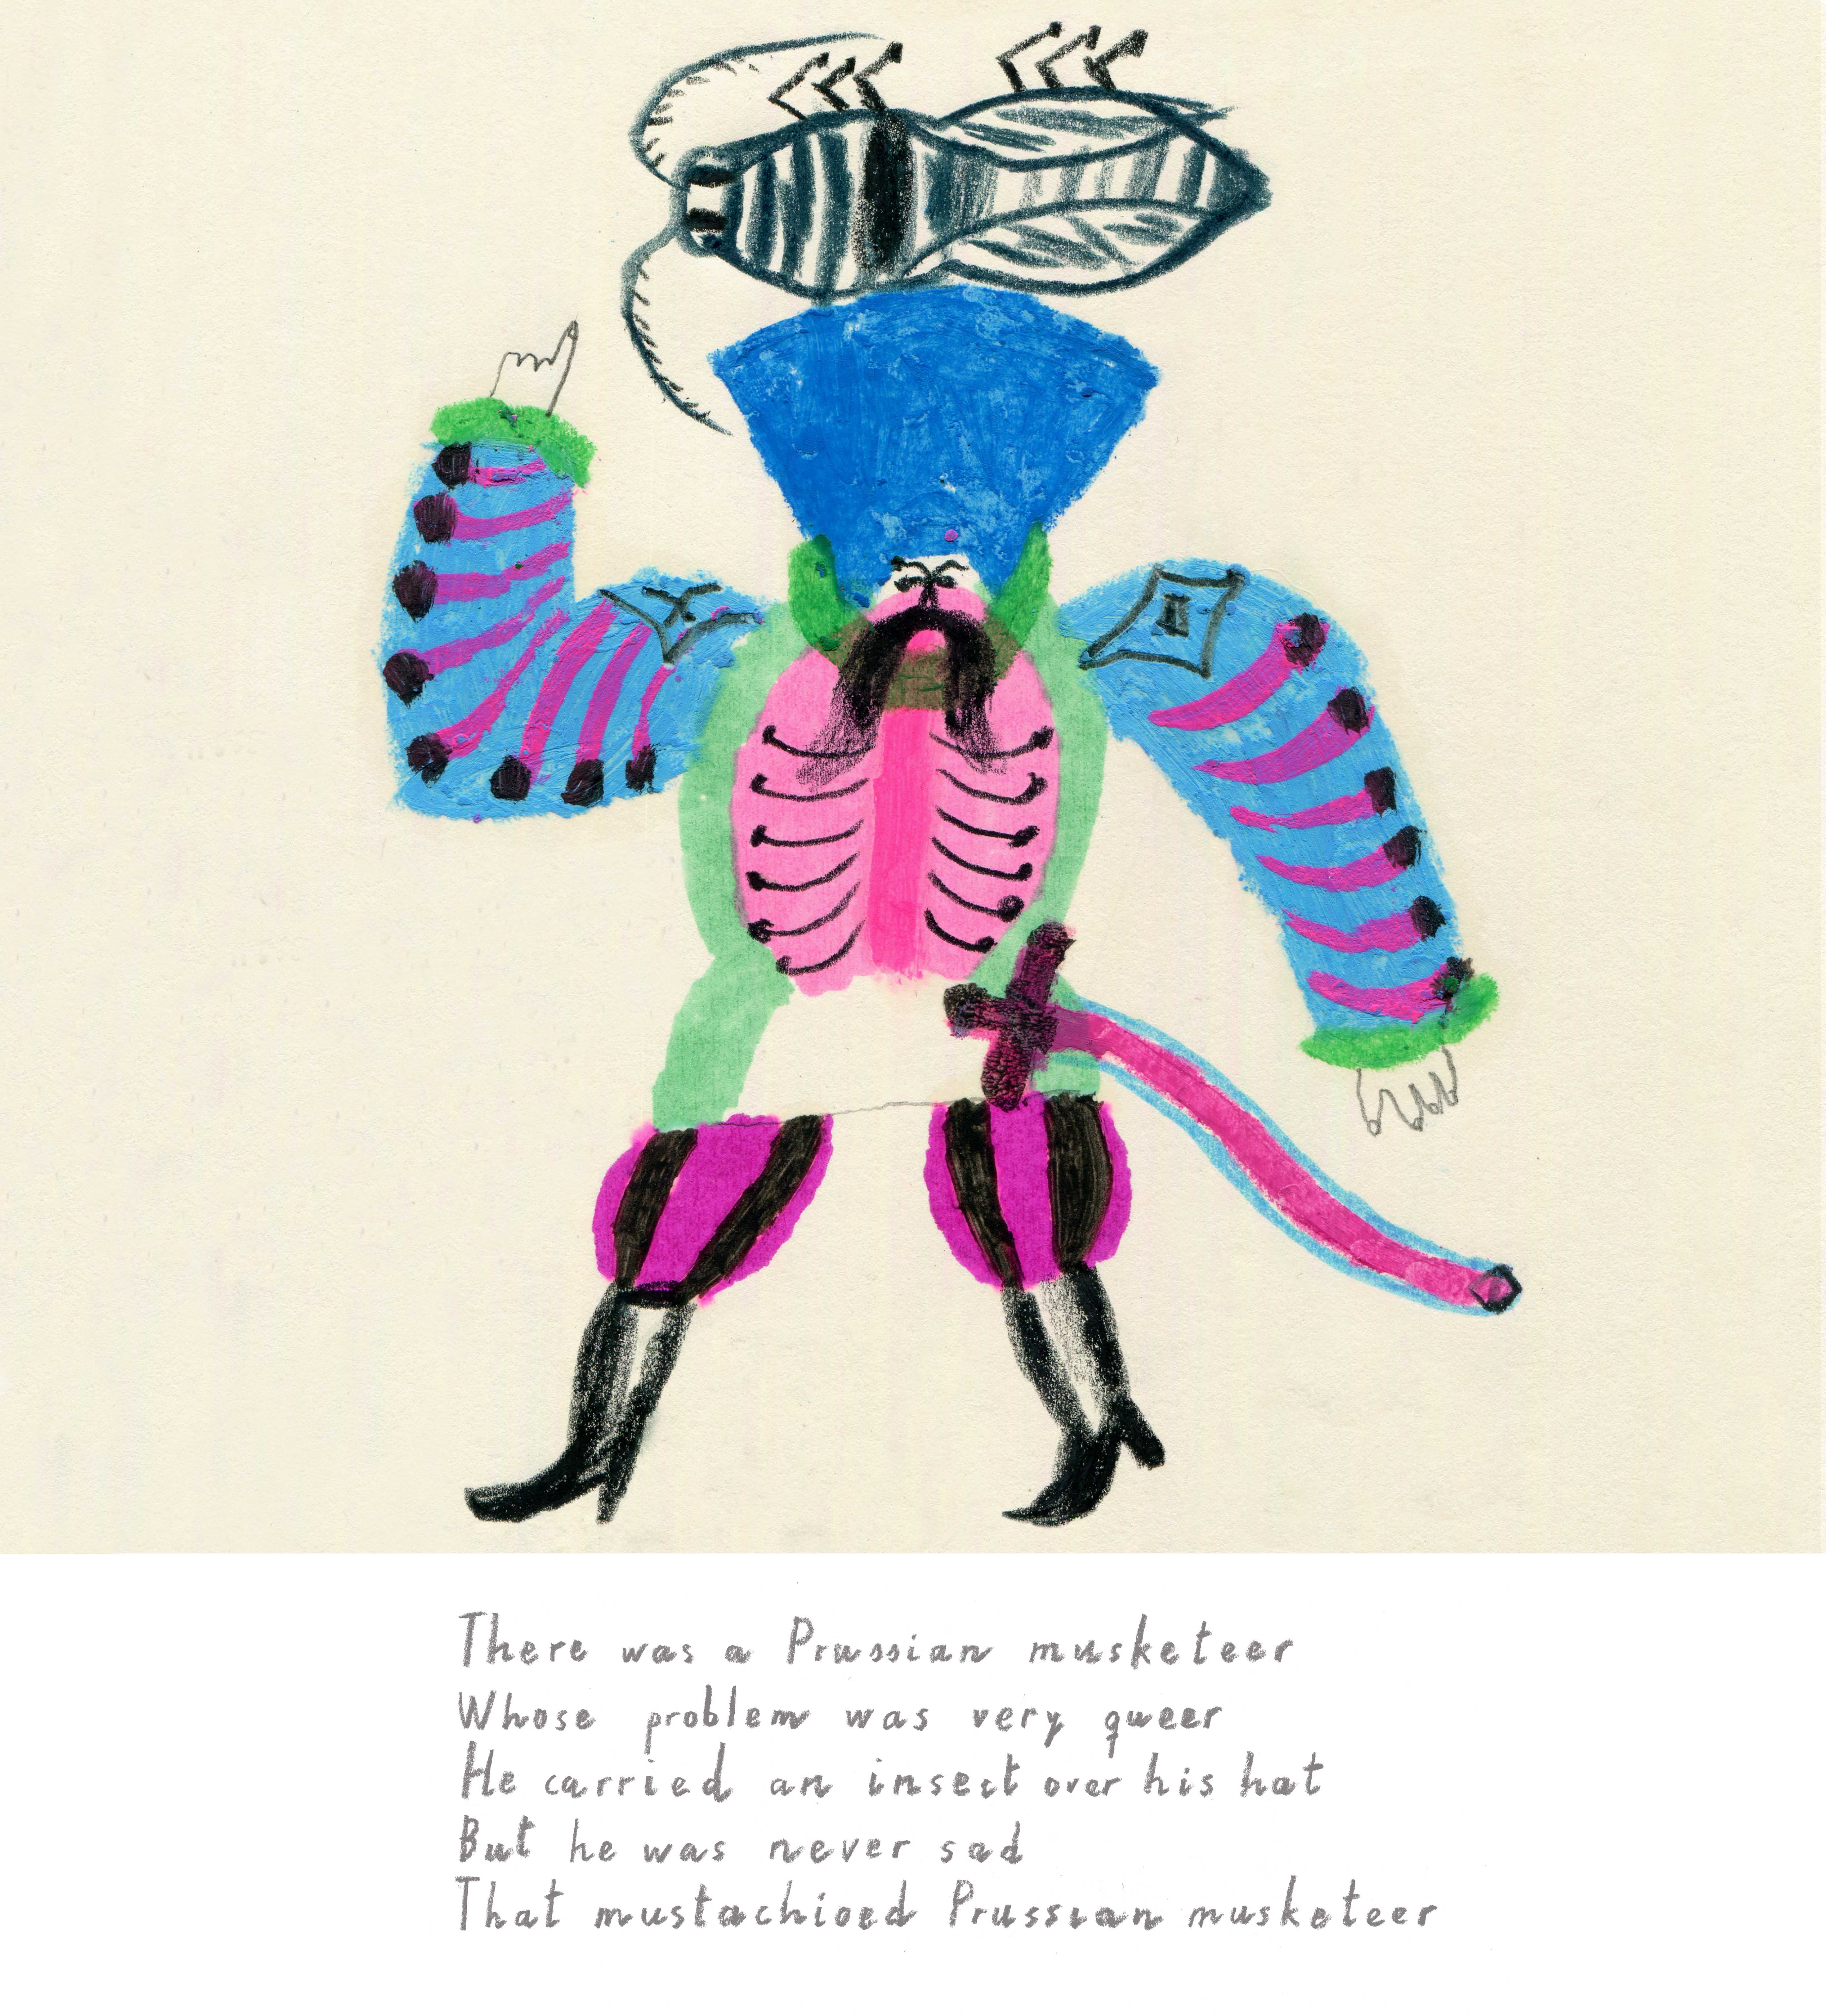 There was a Prussian musketeer
Whose problem was very queer
He carried an insect over his hat
But he was never sad
That mustachioed Prussian musketeer